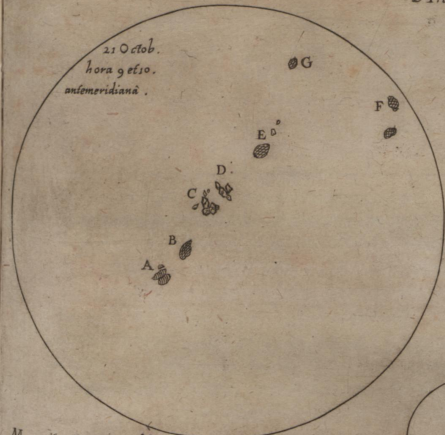 21 Octob.
hora 9 et 10.
antemeridianâ.
G
F
E
D
C
B
A